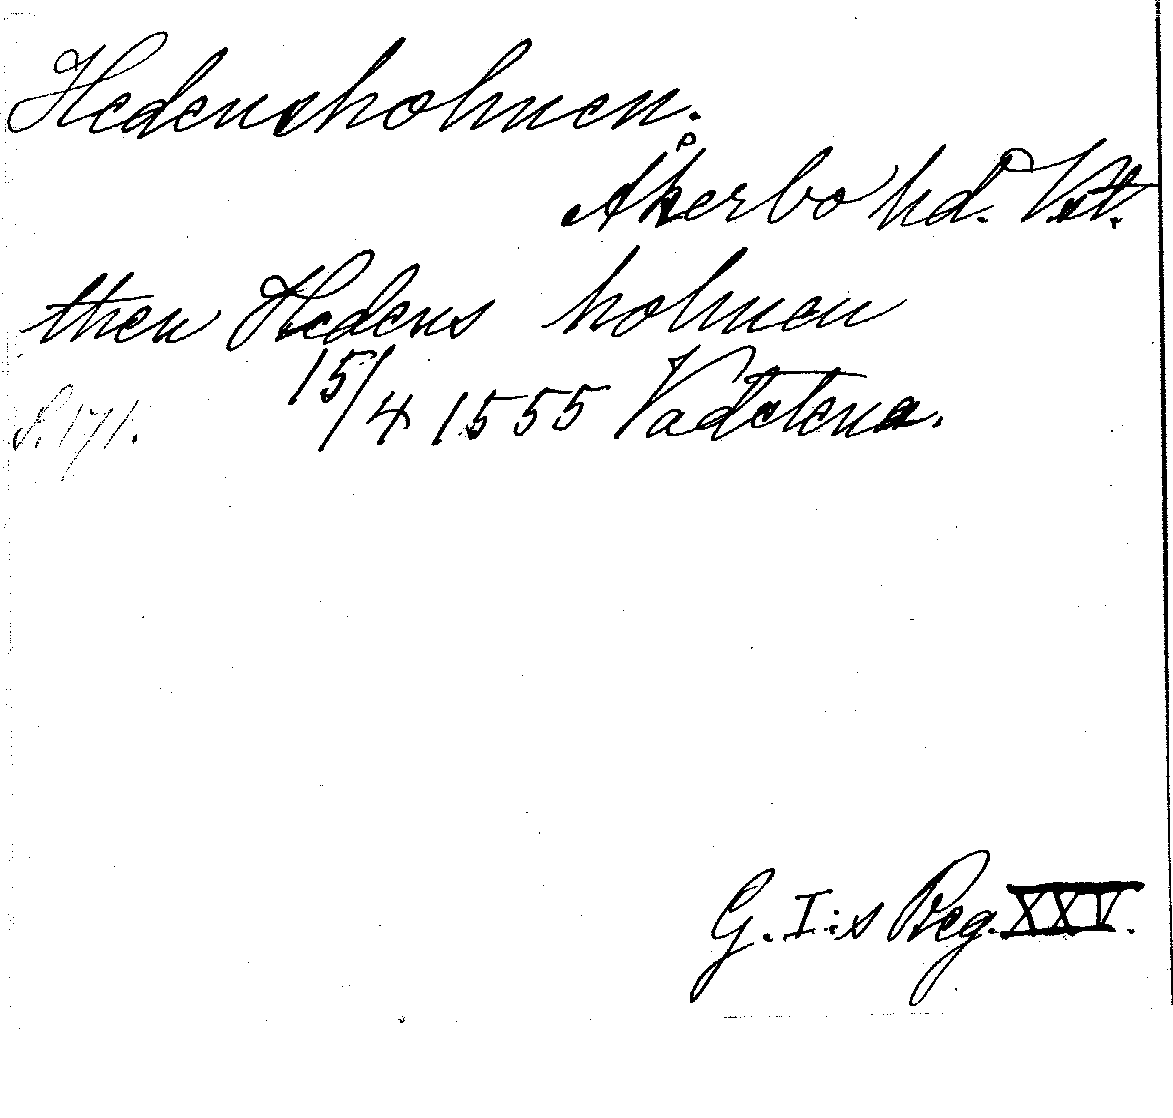 Hedensholmen.
Åkerbo hd. Vst.
then Hedens holmen
15/4 1555 Vadstena.
S. 171.
G. I:s Reg. XXV.